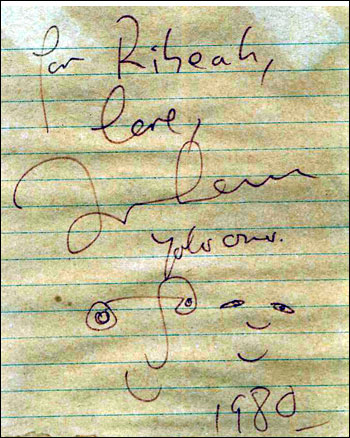 for Ribeah,
love,
John Lennon
Yoko Ono.
1980